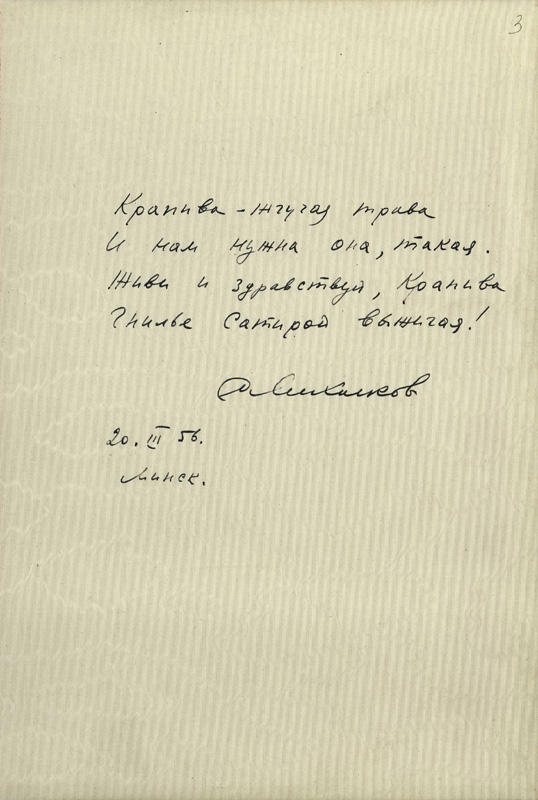 3
Крапива – жгучая трава
И нам нужна она, такая.
Живи и здравствуй, Крапива
Гнилье Сатирой выжигая!
Михалков
20. III 56.
Минск.